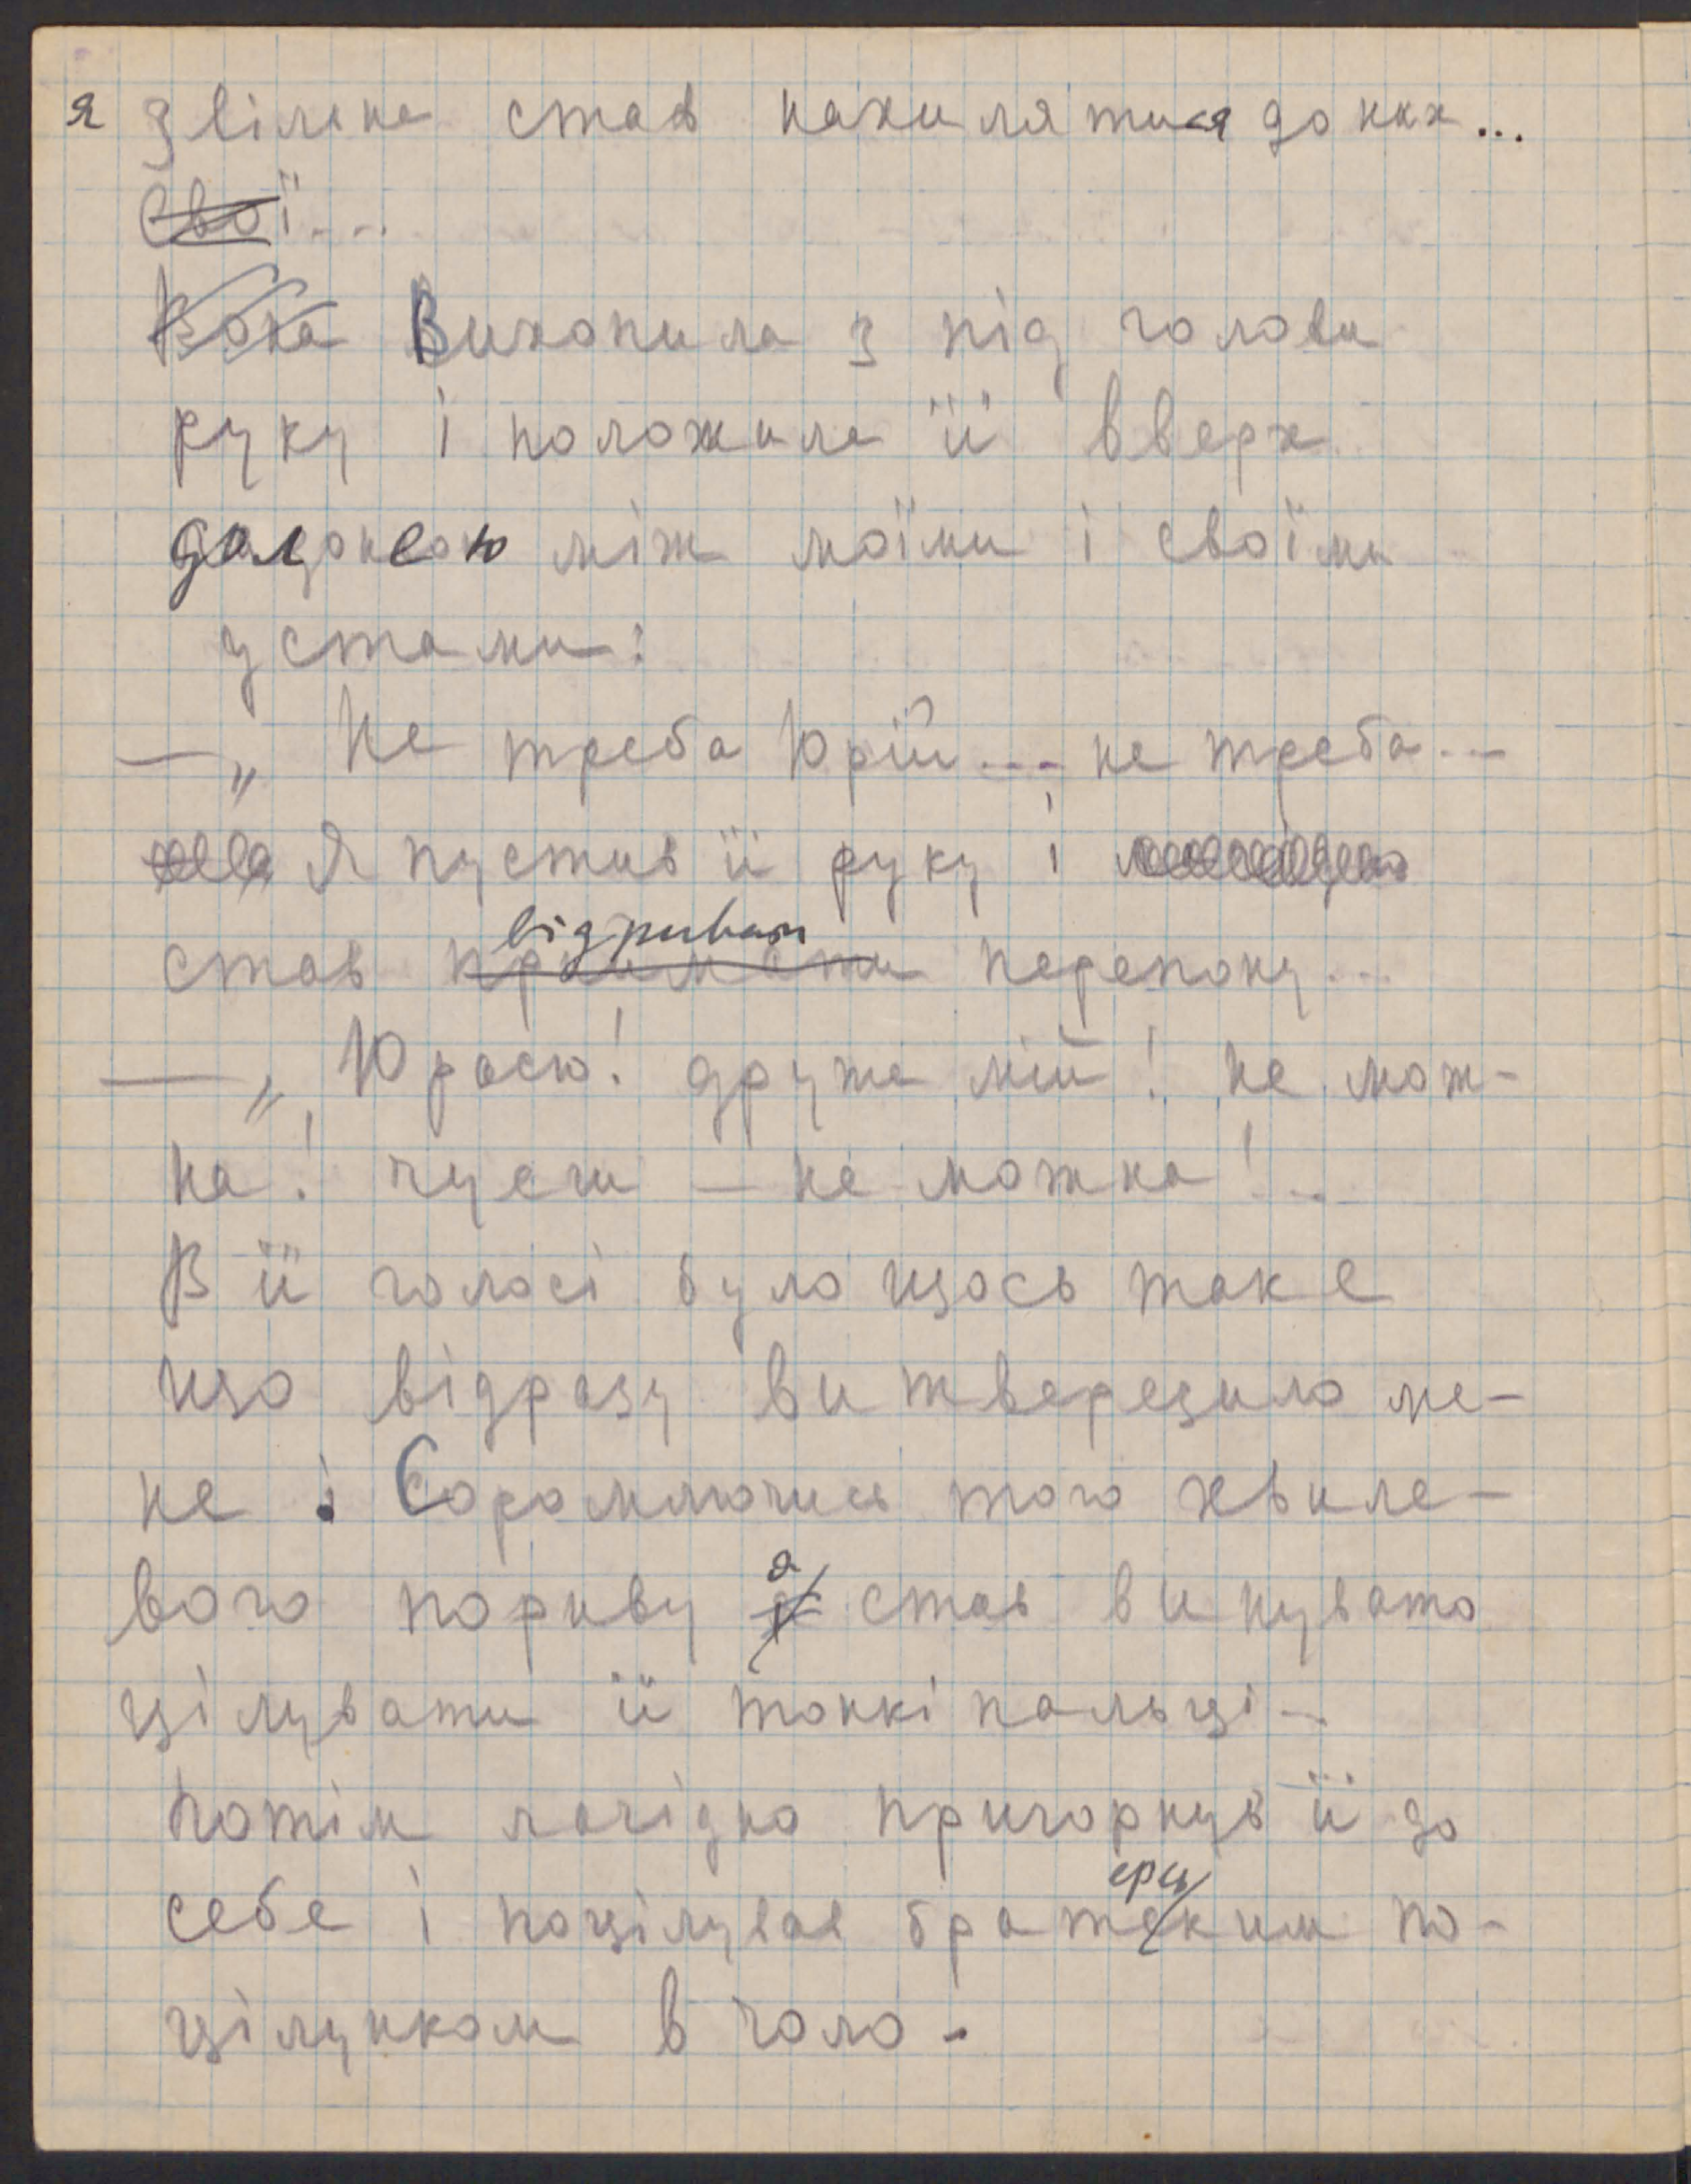 я звільна став нахилятися до них...
Свої...
Вона Вихопила з під голови
руку і положила її вверх
долонею між моїми і своїми
устами:
— „ Не треба Юрій... не треба...
Я пустив її руку і
відривати
став приймати перепону...
— „ Юрасю! друже мій! не мож-
на! чуєш — не можна!..
В її голосі було щось таке
що відразу витверезило ме-
не. Соромлючись того хвиле-
вого пориву я став винувато
цілувати її тонкі пальці —
Потім лагідно пригорнув її до
ерсь
себе і поцілував братским по-
цілунком в чоло -